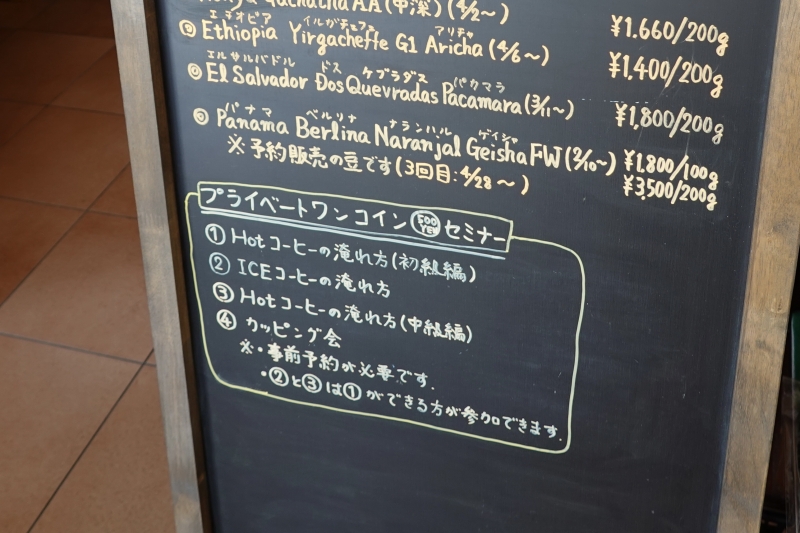 Gachatha AA (中深) (4/2~)
¥1.660/200g
エチオピア イルガチェフェ アリチャ
◎ Ethiopia Yirgacheffe G1 Aricha (4/6~)
¥1,400/200g
エルサルバドル ドス ケブラダス パカマラ
◎ El Salvador Dos Quevradas Pacamara (3/11~)
¥1,800/200g
パナマ ベルリナ ナランハル ゲイシャ
◎ Panama Berlina Naranjal Geisha FW (2/10~) ¥1.800/100g
※予約販売の豆です (3回目:4/28~) ¥3,500/200g
プライベートワンコイン 500 YEN セミナー
① Hotコーヒーの淹れ方(初級編)
② ICEコーヒーの淹れ方
③ Hotコーヒーの淹れ方(中級編)
④ カッピング会
※・事前予約が必要です.
・②と③は①ができる方が参加できます.